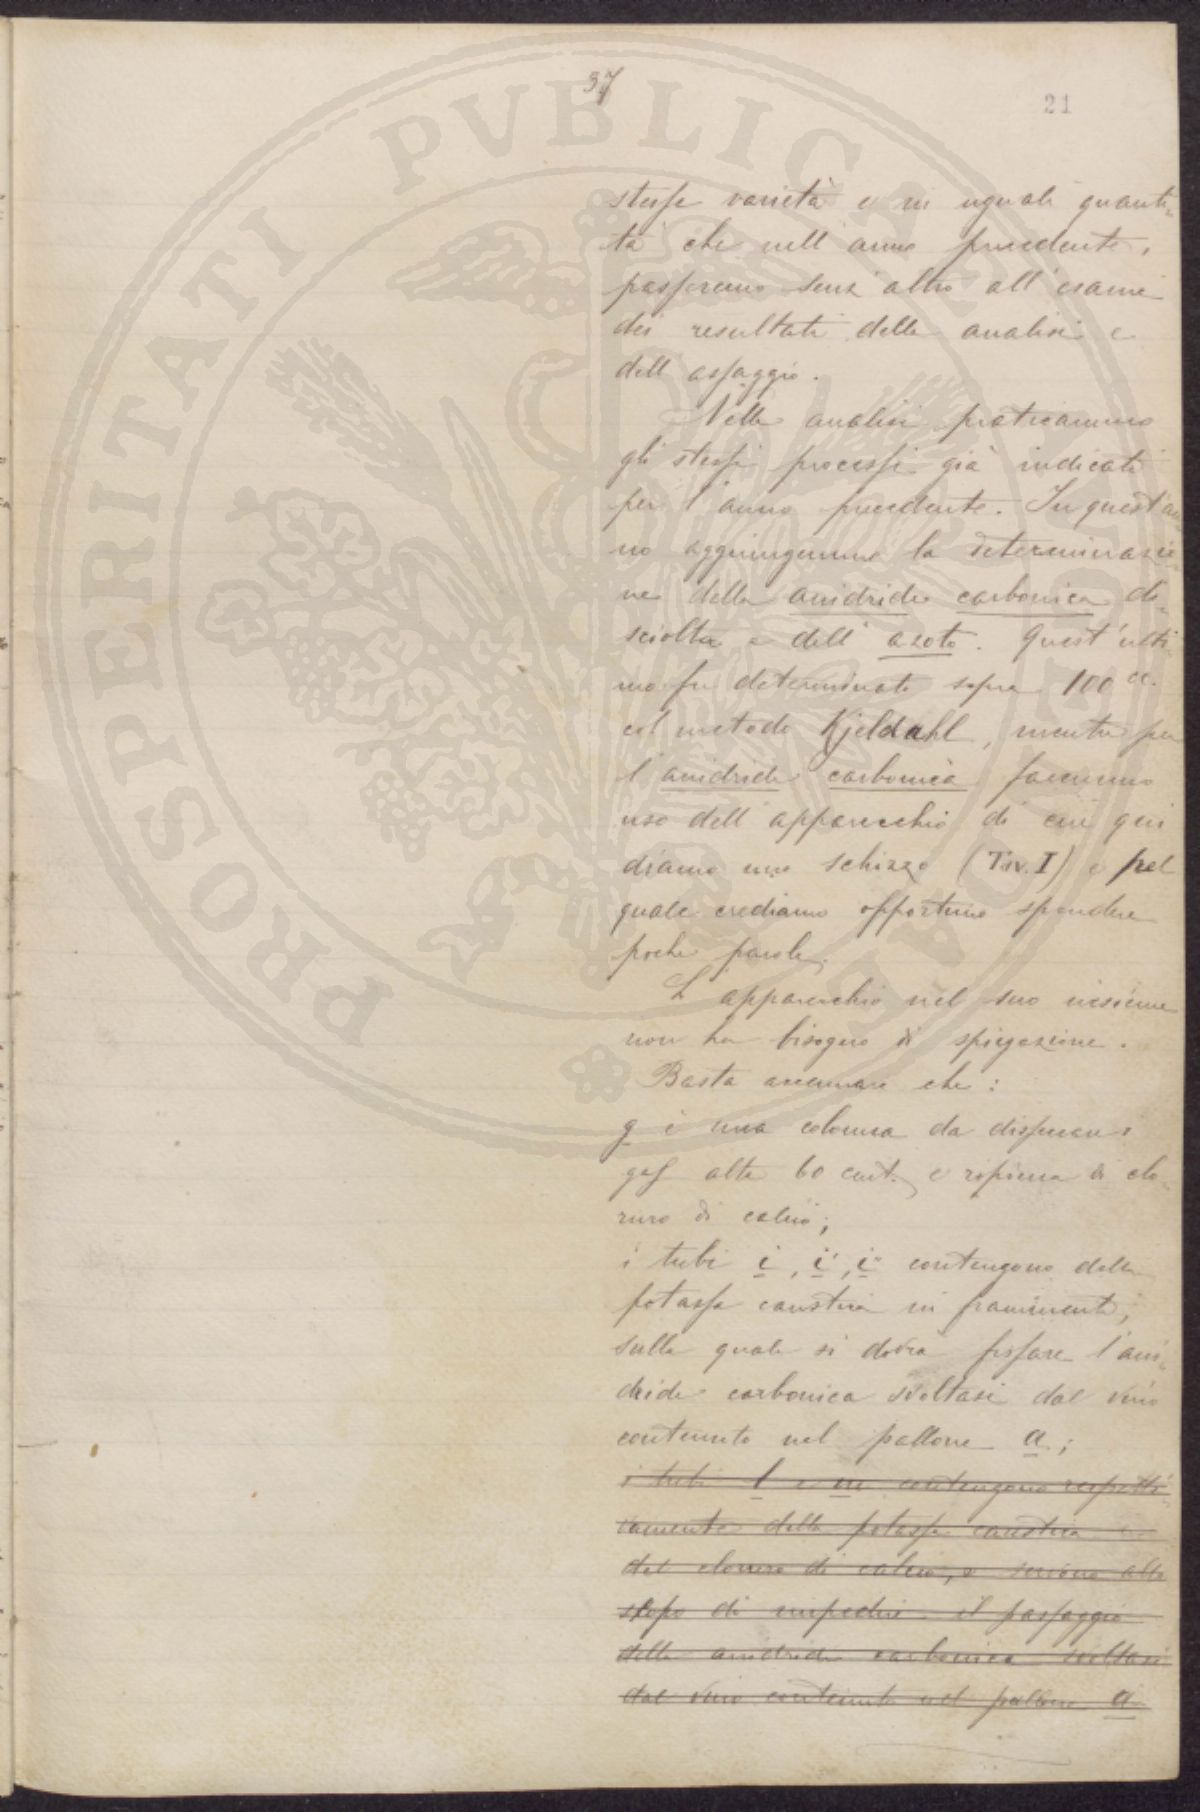 37
21
stessa varietà e in uguali quanti-
tà che nell'anno precedente,
passeremo senz'altro all'esame
dei resultati delle analisi e
dell'assaggio.
Nelle analisi praticammo
gli stessi processi già indicati
per l'anno precedente. In quest'an
no aggiungemmo la determinazio-
ne della anidride carbonica di-
sciolta e dell'azoto. Quest'ulti-
mo fu determinato sopra 100 cc.
col metodo Kjeldahl, mentre per
l'anidride carbonica facemmo
uso dell'apparecchio di cui qui
diamo uno schizzo (Tav. I) e pel
quale crediamo opportuno spendere
poche parole.
L'apparecchio nel suo insieme
non ha bisogno di spiegazione.
Basta accennare che:
g è una colonna da disseccare
gas alta 60 cent. e ripiena di clo-
ruro di calcio;
i tubi i, i', i'' contengono della
potassa caustica in frammenti,
sulla quale si dovrà fissare l'ani-
dride carbonica svoltasi dal vino
contenuto nel pallone a;
i tubi l e m contengono respetti-
vamente della potassa caustica e
del cloruro di calcio, e servono allo
scopo di impedire il passaggio
della anidride carbonica svoltasi
dal vino contenuto nel pallone a
PROSPERITATI PVBLICAE AVGENDAE